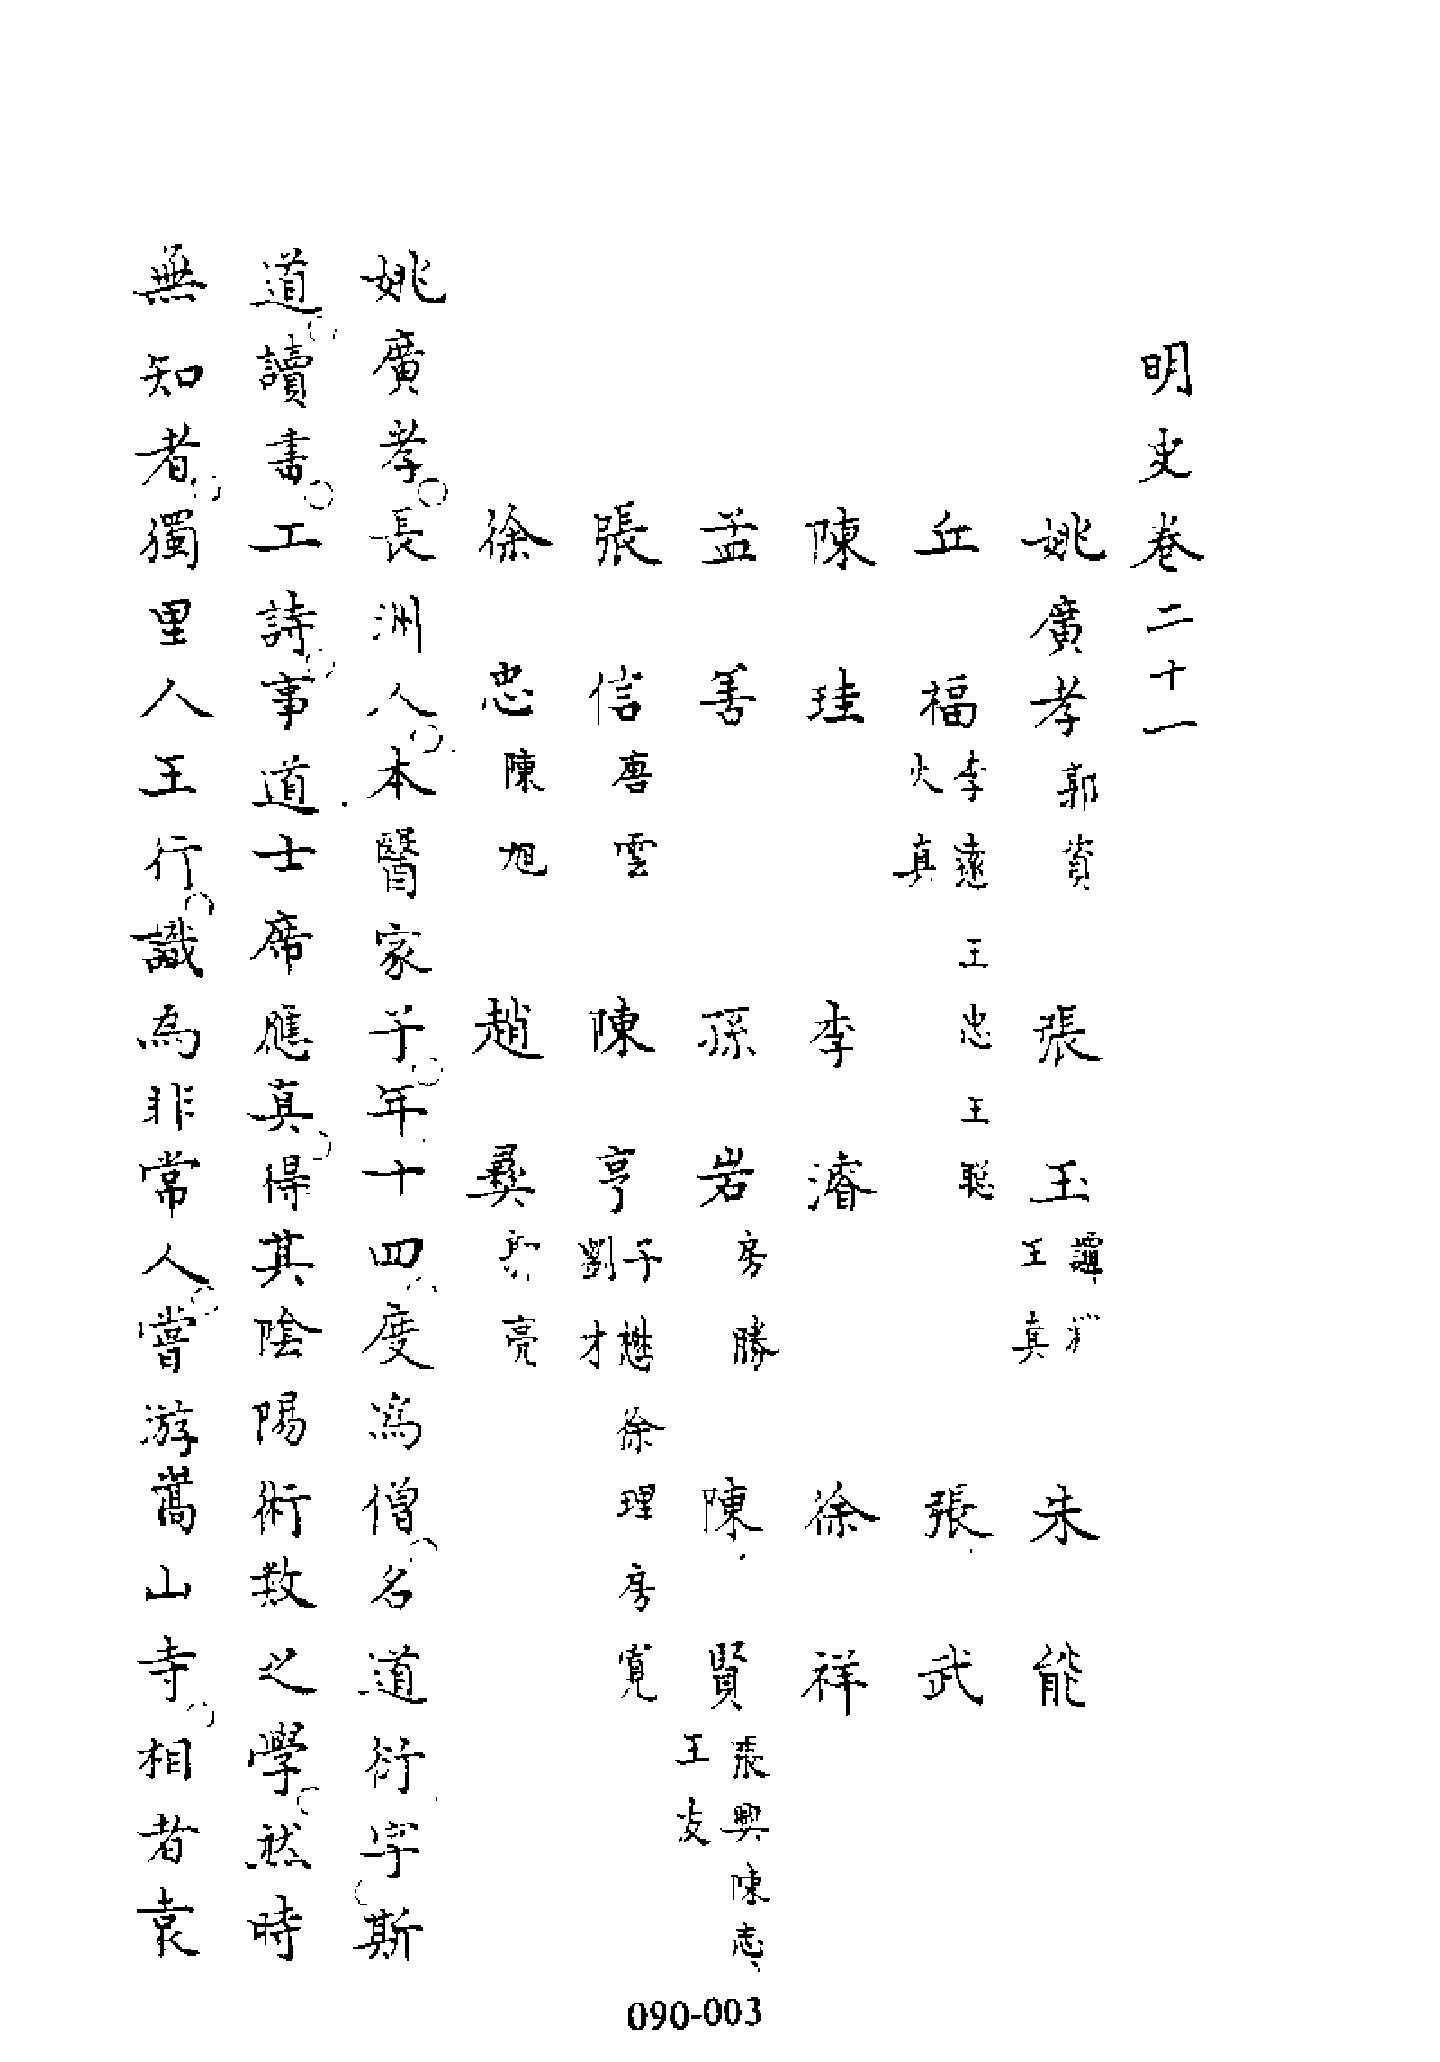 明史卷二十一
姚廣孝 郭資 張玉 譚淵 王真 朱能
丘福 李遠 王忠 王聰 火真 張武
陳珪 李濬 徐祥
孟善 孫岩 房勝 陳賢 張興 陳志 王友
張信 唐雲 陳亨 子懋 徐理 房寬 劉才
徐忠 陳旭 趙彝 郭亮
姚廣孝長洲人本醫家子年十四度爲僧名道衍字斯
道讀書工詩事道士席應真得其陰陽術數之學然時
無知者獨里人王行識為非常人嘗游嵩山寺相者袁
090-003